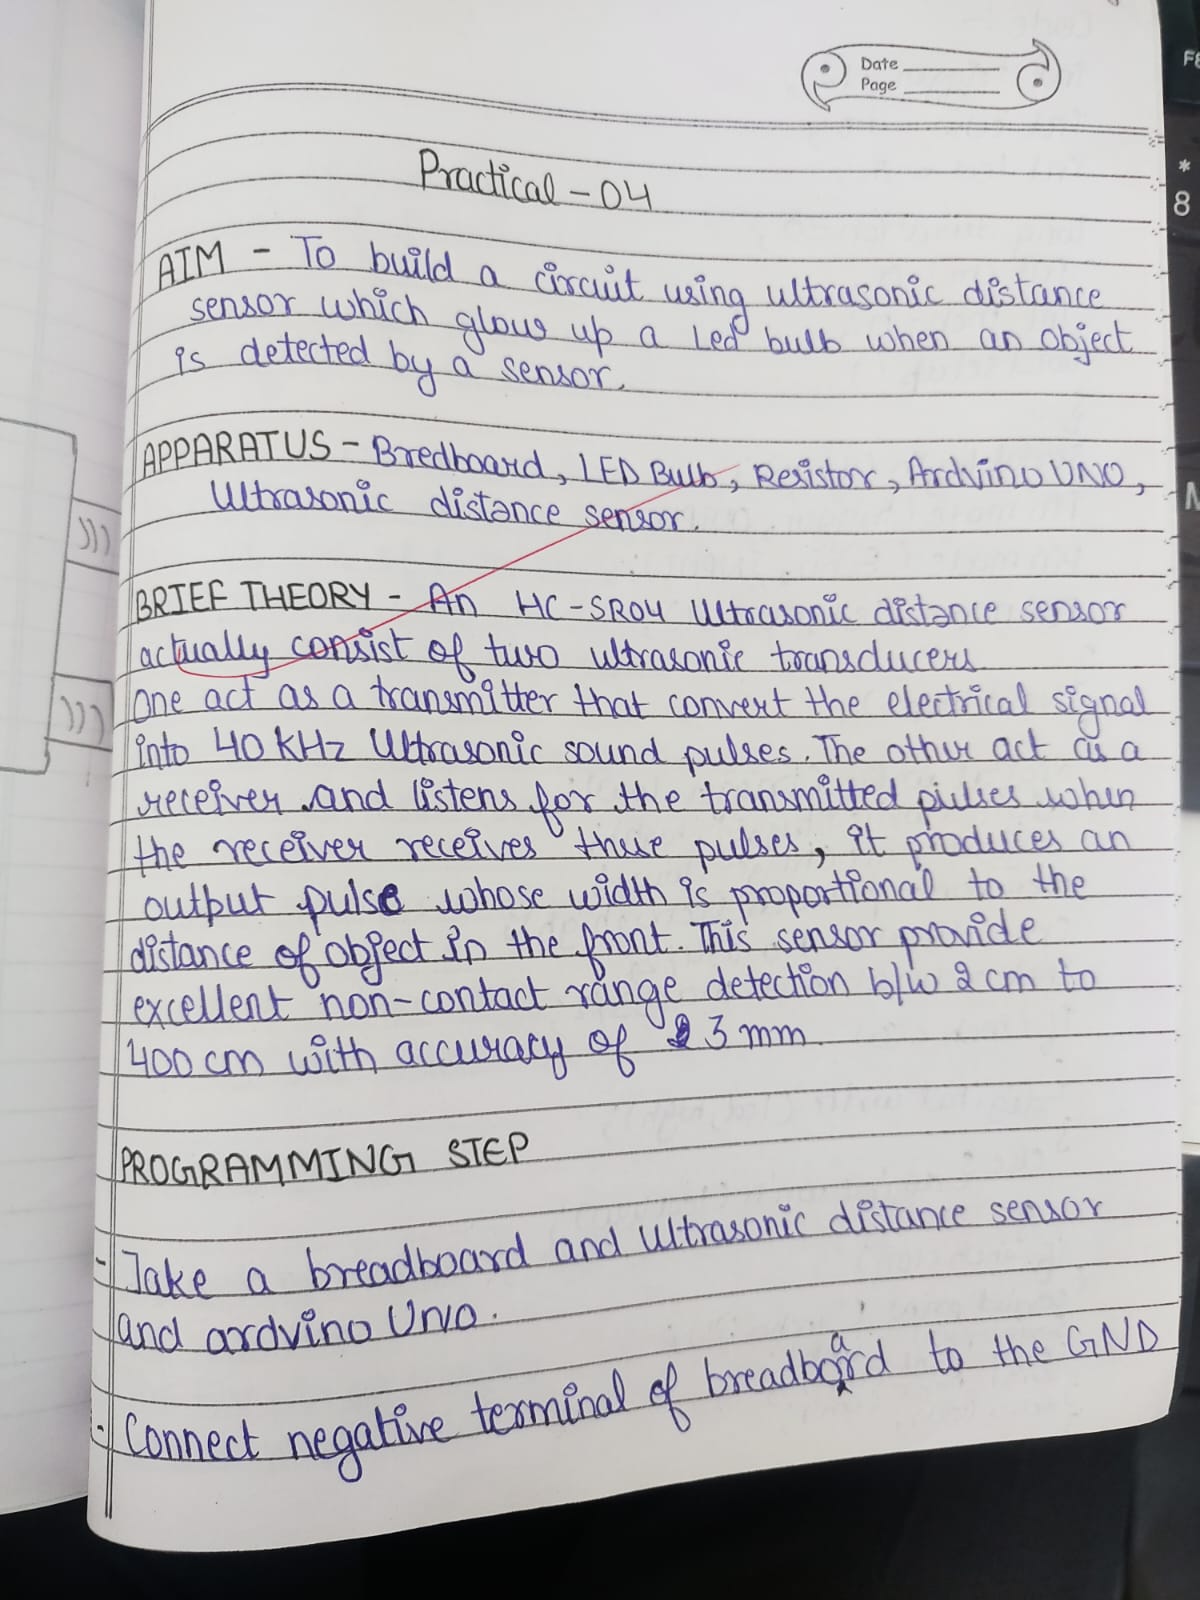 Date
Page
Practical - 04
AIM - To build a circuit using ultrasonic distance
sensor which glows up a Led bulb when an object
is detected by a sensor.
APPARATUS - Bredboard, LED Bulb, Resistor, Ardvino UNO,
Ultrasonic distance sensor.
BRIEF THEORY - An HC-SR04 Ultrasonic distance sensor
actually consist of two ultrasonic transducers
one act as a transmitter that convert the electrical signal
into 40 KHz Ultrasonic sound pulses. The other act as a
receiver and listens for the transmitted pulses when
the receiver receives these pulses, it produces an
output pulse whose width is proportional to the
distance of object in the front. This sensor provide
excellent non-contact range detection b/w 2 cm to
400 cm with accuracy of 3 mm
PROGRAMMING STEP
- Take a breadboard and ultrasonic distance sensor
and ardvino UNO.
- Connect negative terminal of breadboard to the GND
F8
*
8